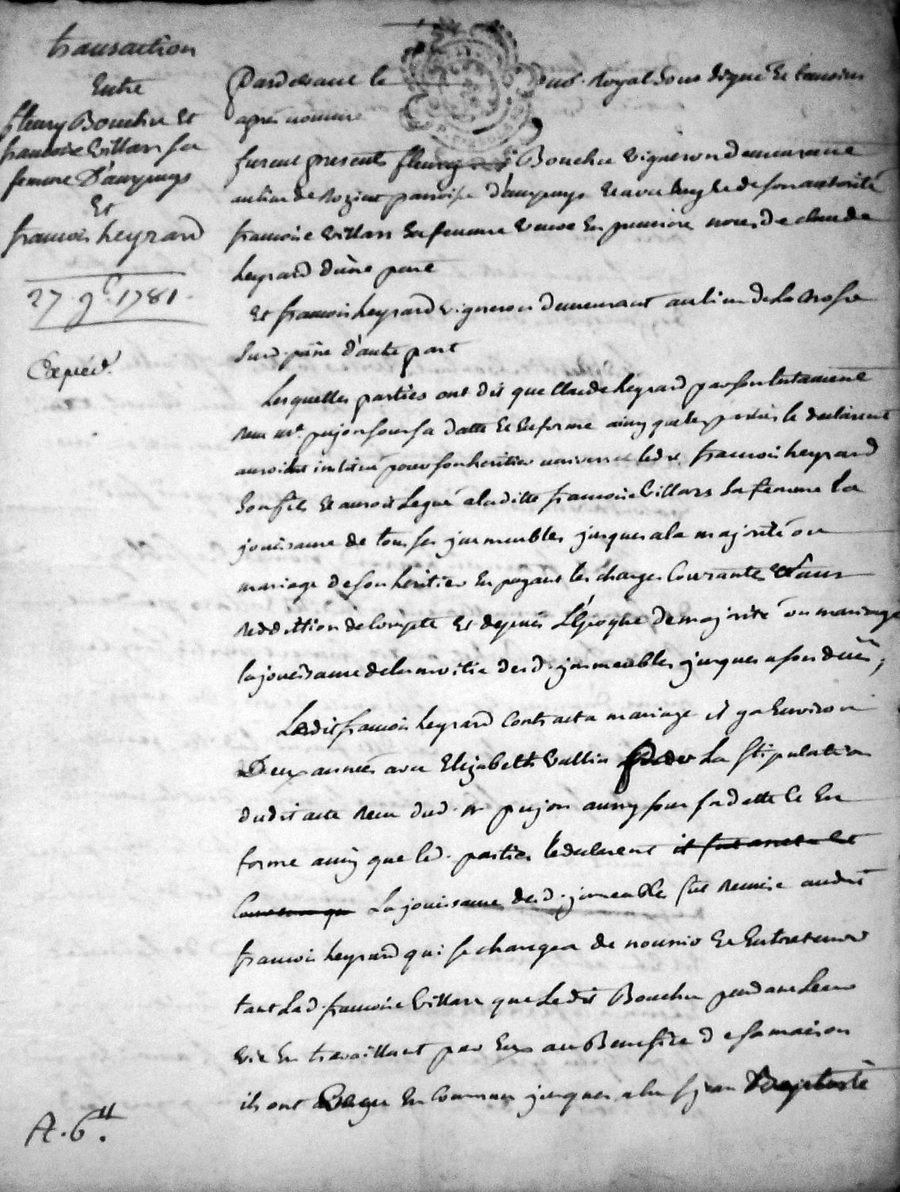 transaction
Entre
fleury Bouchu Et
francoise Villars sa
femme D'ampuys
Et
francois heyrard
27 9.e 1781.
Expéd.
A. 6.#
Pardevant le no.re Royal Sous signé Et temoins
après nommés
furent presents fleury Bouchu vigneron demeurant
au lieu de Rozier parroisse d'ampuys Et avec luy Et de son autorité
francoise Villars sa femme veuve En premiere noces de claude
heyrard d'une part
Et francois heyrard vigneron demeurant au lieu de la
Sus d. psse d'autre part
Lesquelles parties ont dit que Claude heyrard par son testament
Reçu m.e pujon sous sa datte Et En forme ainsy que les parties le declarent
auroit institué pour son heritier universel led. s.r francois heyrard
son fils Et auroit Legué a laditte francoise Villars sa femme la
jouissance de tous ses jmmeubles jusques a la majorité ou
mariage de son heritier En payant les charges Courantes Et Sans
Reddittion de Compte Et depuis L'Epoque de majorité ou mariage
la jouissance de la moitié desd. jmmeubles jusques a son decès;
Ledit francois heyrard Contracta mariage il y a Environ
Deux années avec Elizabeth Vallin par La Stipulation
dudit acte Reçu dud. m.e pujon aussy sous sa datte Et En
forme ainsy que led. parties le declarent il fut arreté Et
Convenu que La jouissance desd. jmmeubles fut Remise audit
francois heyrard qui se chargea de nourrir Et Entretenir
tant Lad. francoise Villars que Ledit Bouchu pendant Leur
vie En travaillant par Eux au Benefice de sa maison
ils ont vecu En Commun jusques a la s.t jean Baptiste